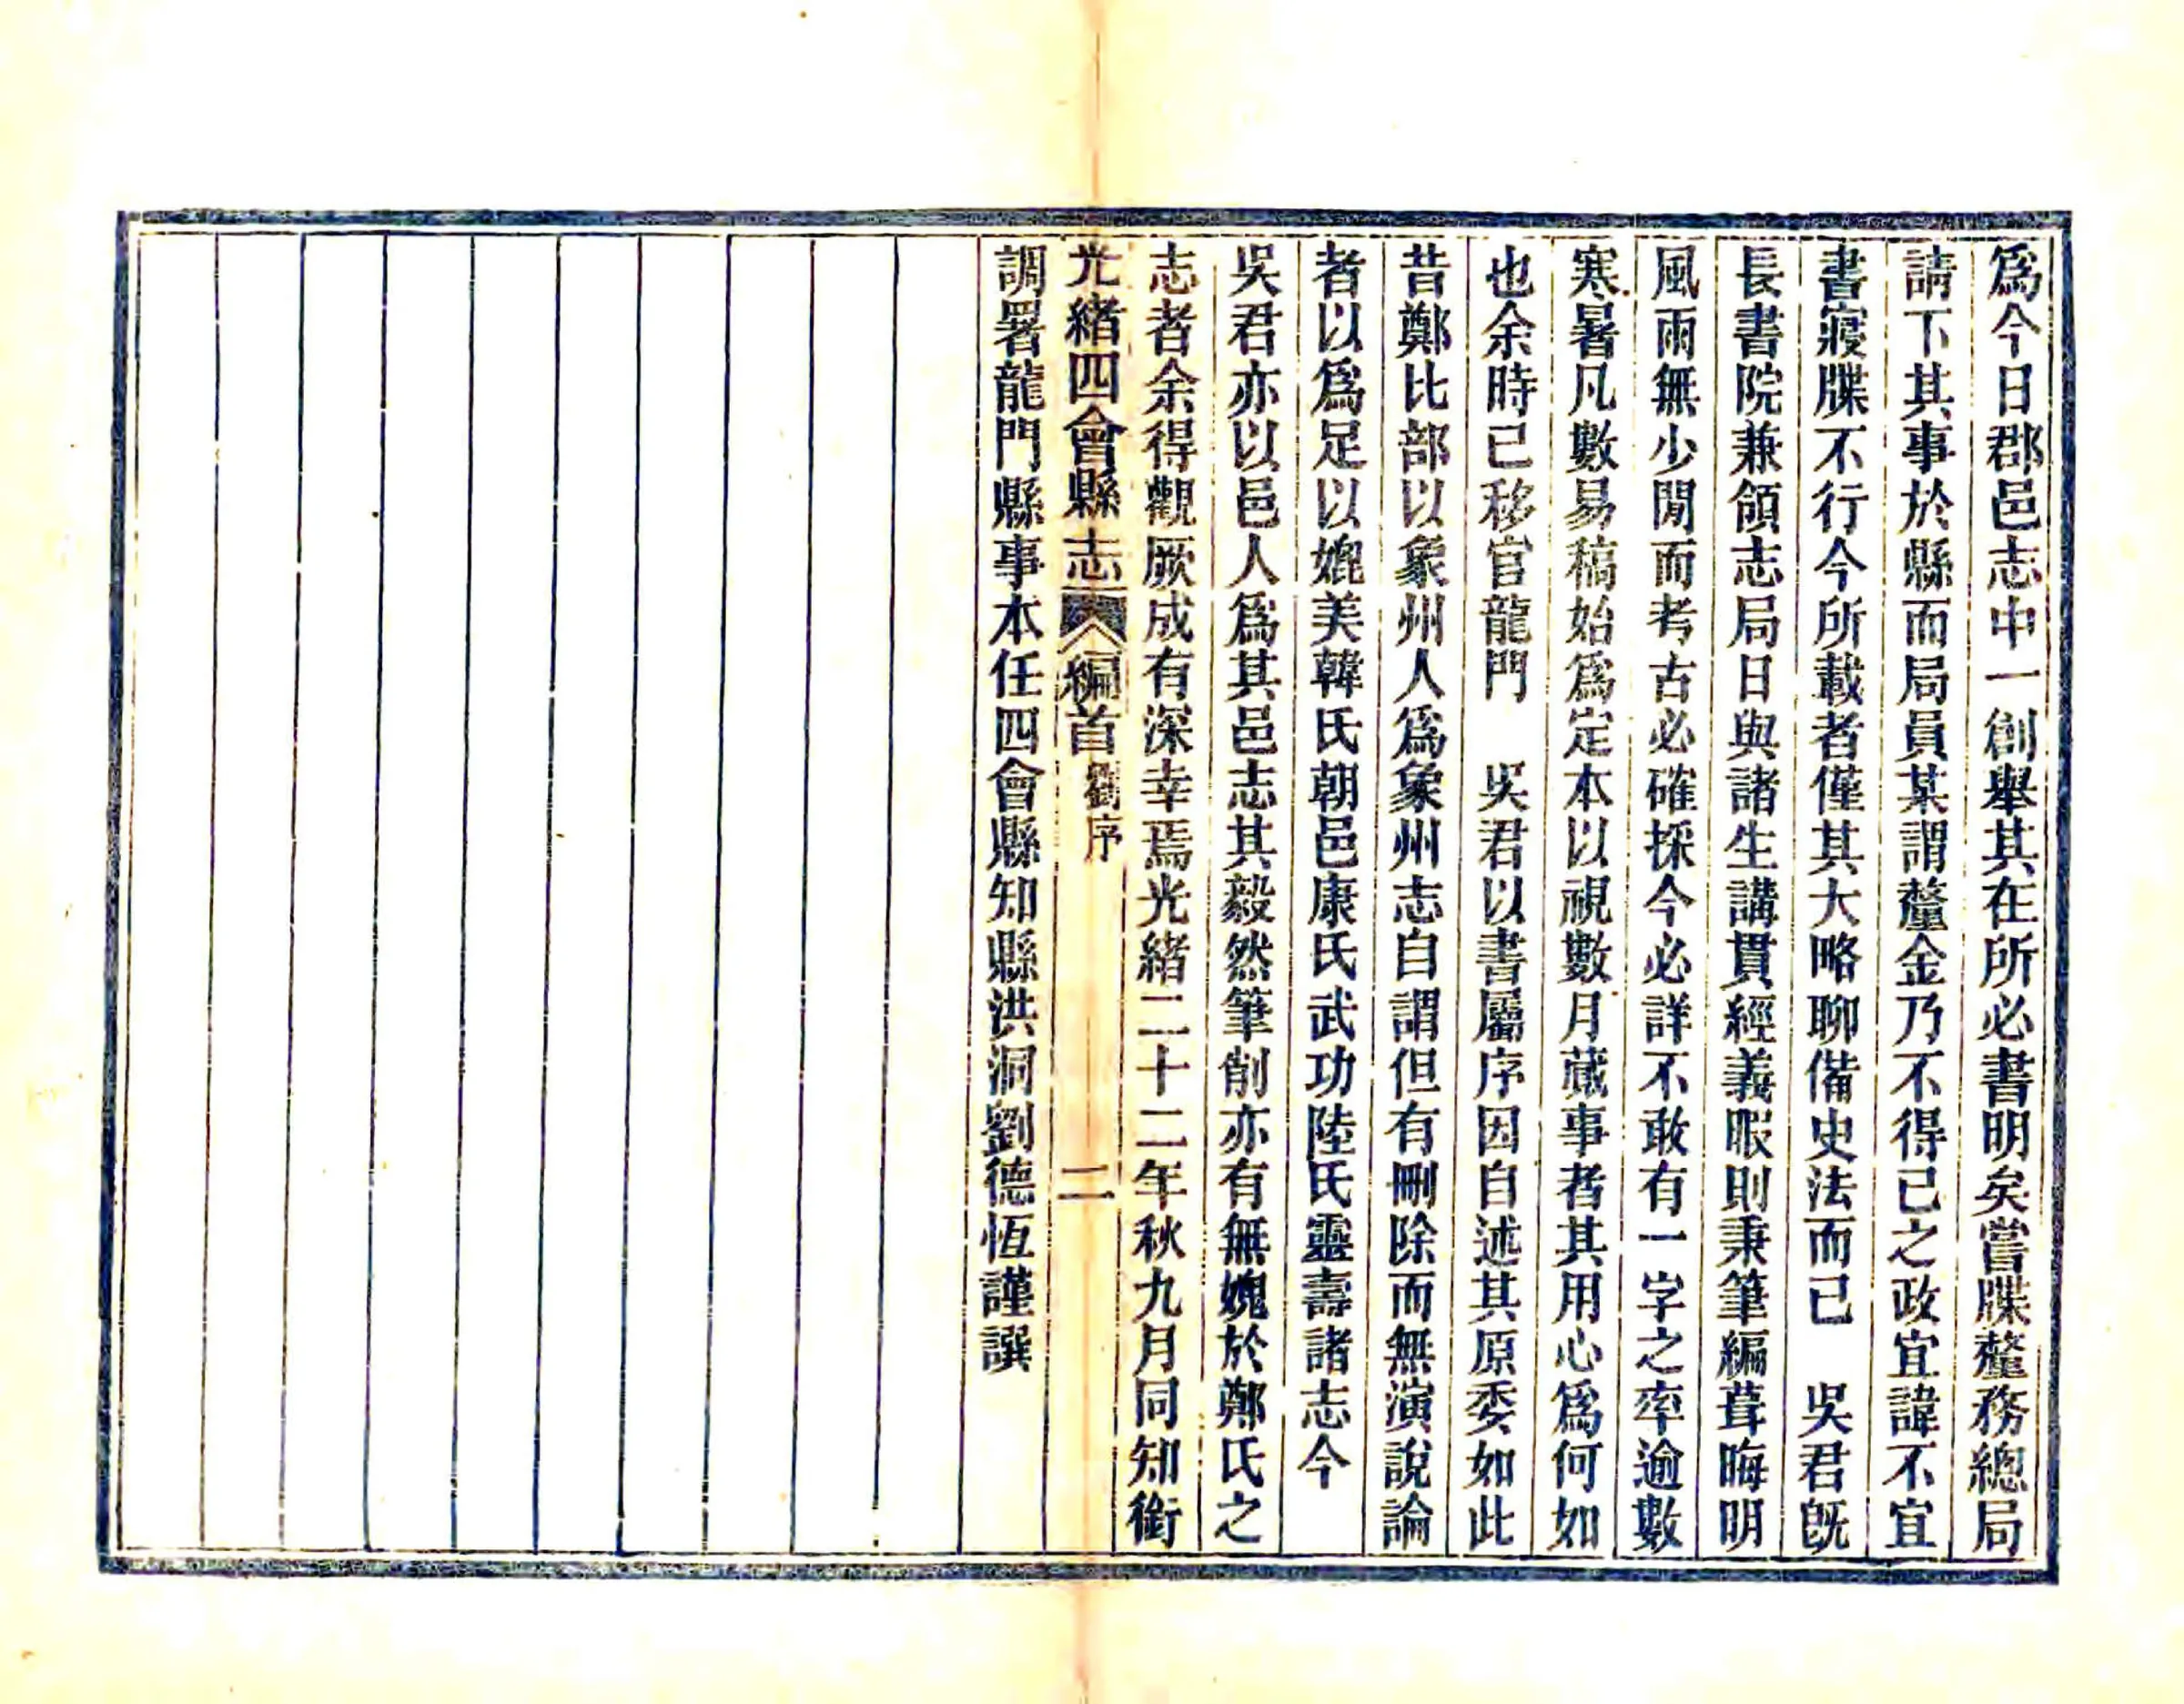 爲今日郡邑志中一創舉其在所必書明矣嘗牒釐務總局
請下其事於縣而局員某謂釐金乃不得已之政宜諱不宜
書寢牒不行今所載者僅其大略聊備史法而已　吳君旣
長書院兼領志局日與諸生講貫經義暇則秉筆編葺晦明
風雨無少閒而考古必確採今必詳不敢有一字之率逾數
寒暑凡數易稿始爲定本以視數月蕆事者其用心爲何如
也余時已移官龍門　吳君以書屬序因自述其原委如此
昔鄭比部以象州人爲象州志自謂但有刪除而無演說論
者以爲足以媲美韓氏朝邑康氏武功陸氏靈壽諸志今
吳君亦以邑人爲其邑志其毅然筆削亦有無媿於鄭氏之
志者余得觀厥成有深幸焉光緒二十二年秋九月同知銜
光緒四會縣志　編首　劉序　二
調署龍門縣事本任四會縣知縣洪洞劉德恆謹譔